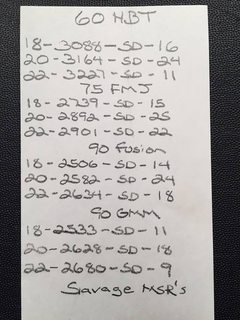 60 NBT
18-3088-SD-16
20-3164-SD-24
22-3227-SD-11
75 FMJ
18-2739-SD-15
20-2892-SD-25
22-2901-SD-22
90 Fusion
18-2506-SD-14
20-2582-SD-24
22-2634-SD-18
90 GMM
18-2533-SD-11
20-2628-SD-18
22-2680-SD-9
Savage MSR's